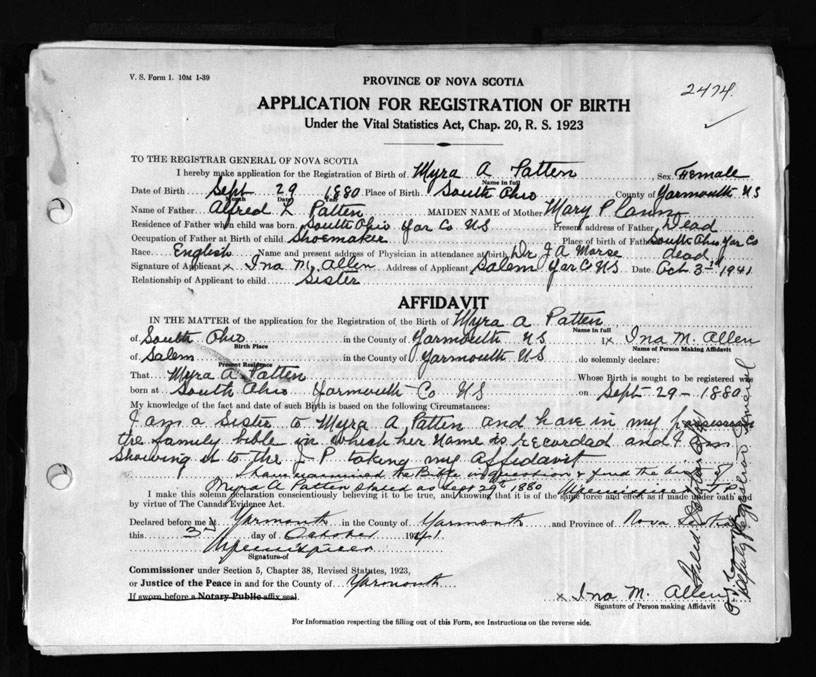 V. S. Form 1. 10M 1-39
2474.
PROVINCE OF NOVA SCOTIA
APPLICATION FOR REGISTRATION OF BIRTH
Under the Vital Statistics Act, Chap. 20, R. S. 1923
TO THE REGISTRAR GENERAL OF NOVA SCOTIA
I hereby make application for the Registration of Birth of Myra A Patten Sex Female
Name in full
Date of Birth Sept 29 1880 Place of Birth South Ohio County of Yarmouth N S
Month Date Year
Name of Father Alfred L Patten MAIDEN NAME of Mother Mary P Cann
Residence of Father when child was born South Ohio Yar Co N S Present address of Father Dead
Occupation of Father at Birth of child Shoemaker Place of birth of Father South Ohio Yar Co
Race English Name and present address of Physician in attendance at birth Dr J A Morse dead
Signature of Applicant x Ina M Allen Address of Applicant Salem Yar Co N S Date Oct 3rd 1941
Relationship of Applicant to child Sister
AFFIDAVIT
IN THE MATTER of the application for the Registration of the Birth of Myra A Patten
Name in full
of South Ohio in the County of Yarmouth N S I x Ina M. Allen
Birth Place Name of Person Making Affidavit
of Salem in the County of Yarmouth N S do solemnly declare:
Present Residence
That Myra A Patten Whose Birth is sought to be registered was
born at South Ohio Yarmouth Co N S on Sept 29 - 1880
My knowledge of the fact and date of such Birth is based on the following Circumstances:
I am a sister to Myra A Patten and have in my possession
the family bible in which her name is recorded and I am
showing it to the J P taking my affidavit
I have examined the Bible in question & find the birth of
Myra A Patten as Sept 29th 1880
I make this solemn declaration conscientiously believing it to be true, and knowing that it is of the same force and effect as if made under oath and
by virtue of The Canada Evidence Act.
Declared before me at Yarmouth in the County of Yarmouth and Province of Nova Scotia
this 3rd day of October 1941
Signature of
Commissioner under Section 5, Chapter 38, Revised Statutes, 1923,
or Justice of the Peace in and for the County of Yarmouth
If sworn before a Notary Public affix seal.
x Ina M. Allen
Signature of Person making Affidavit
Deputy Registrar General
For Information respecting the filling out of this Form, see Instructions on the reverse side.